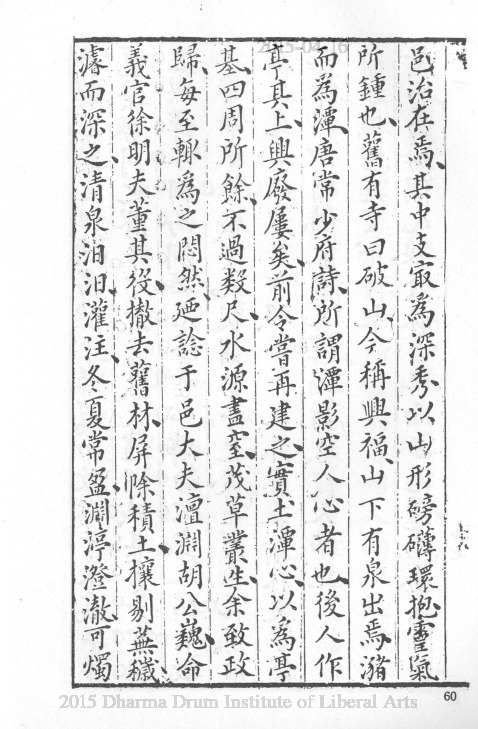 邑治在焉其中支寂為深秀以山形磅礴環抱靈氣
所鍾也舊有寺曰破山今稱興福山下有泉出焉瀦
而為潭唐常少府詩所謂潭影空人心者也後人作
亭其上興廢屢矣前令嘗再建之實土潭心以為亭
基四周所餘不過数尺水源盡窒茂草叢生余致政
歸每至輙為之悶然廼諗于邑大夫澶淵胡公巍命
義官徐明夫董其役撤去舊材屏除積土攘剔蕪穢
濬而深之清泉汨汨灌注冬夏常盈淵渟澄澈可燭
60
2015 Dharma Drum Institute of Liberal Arts